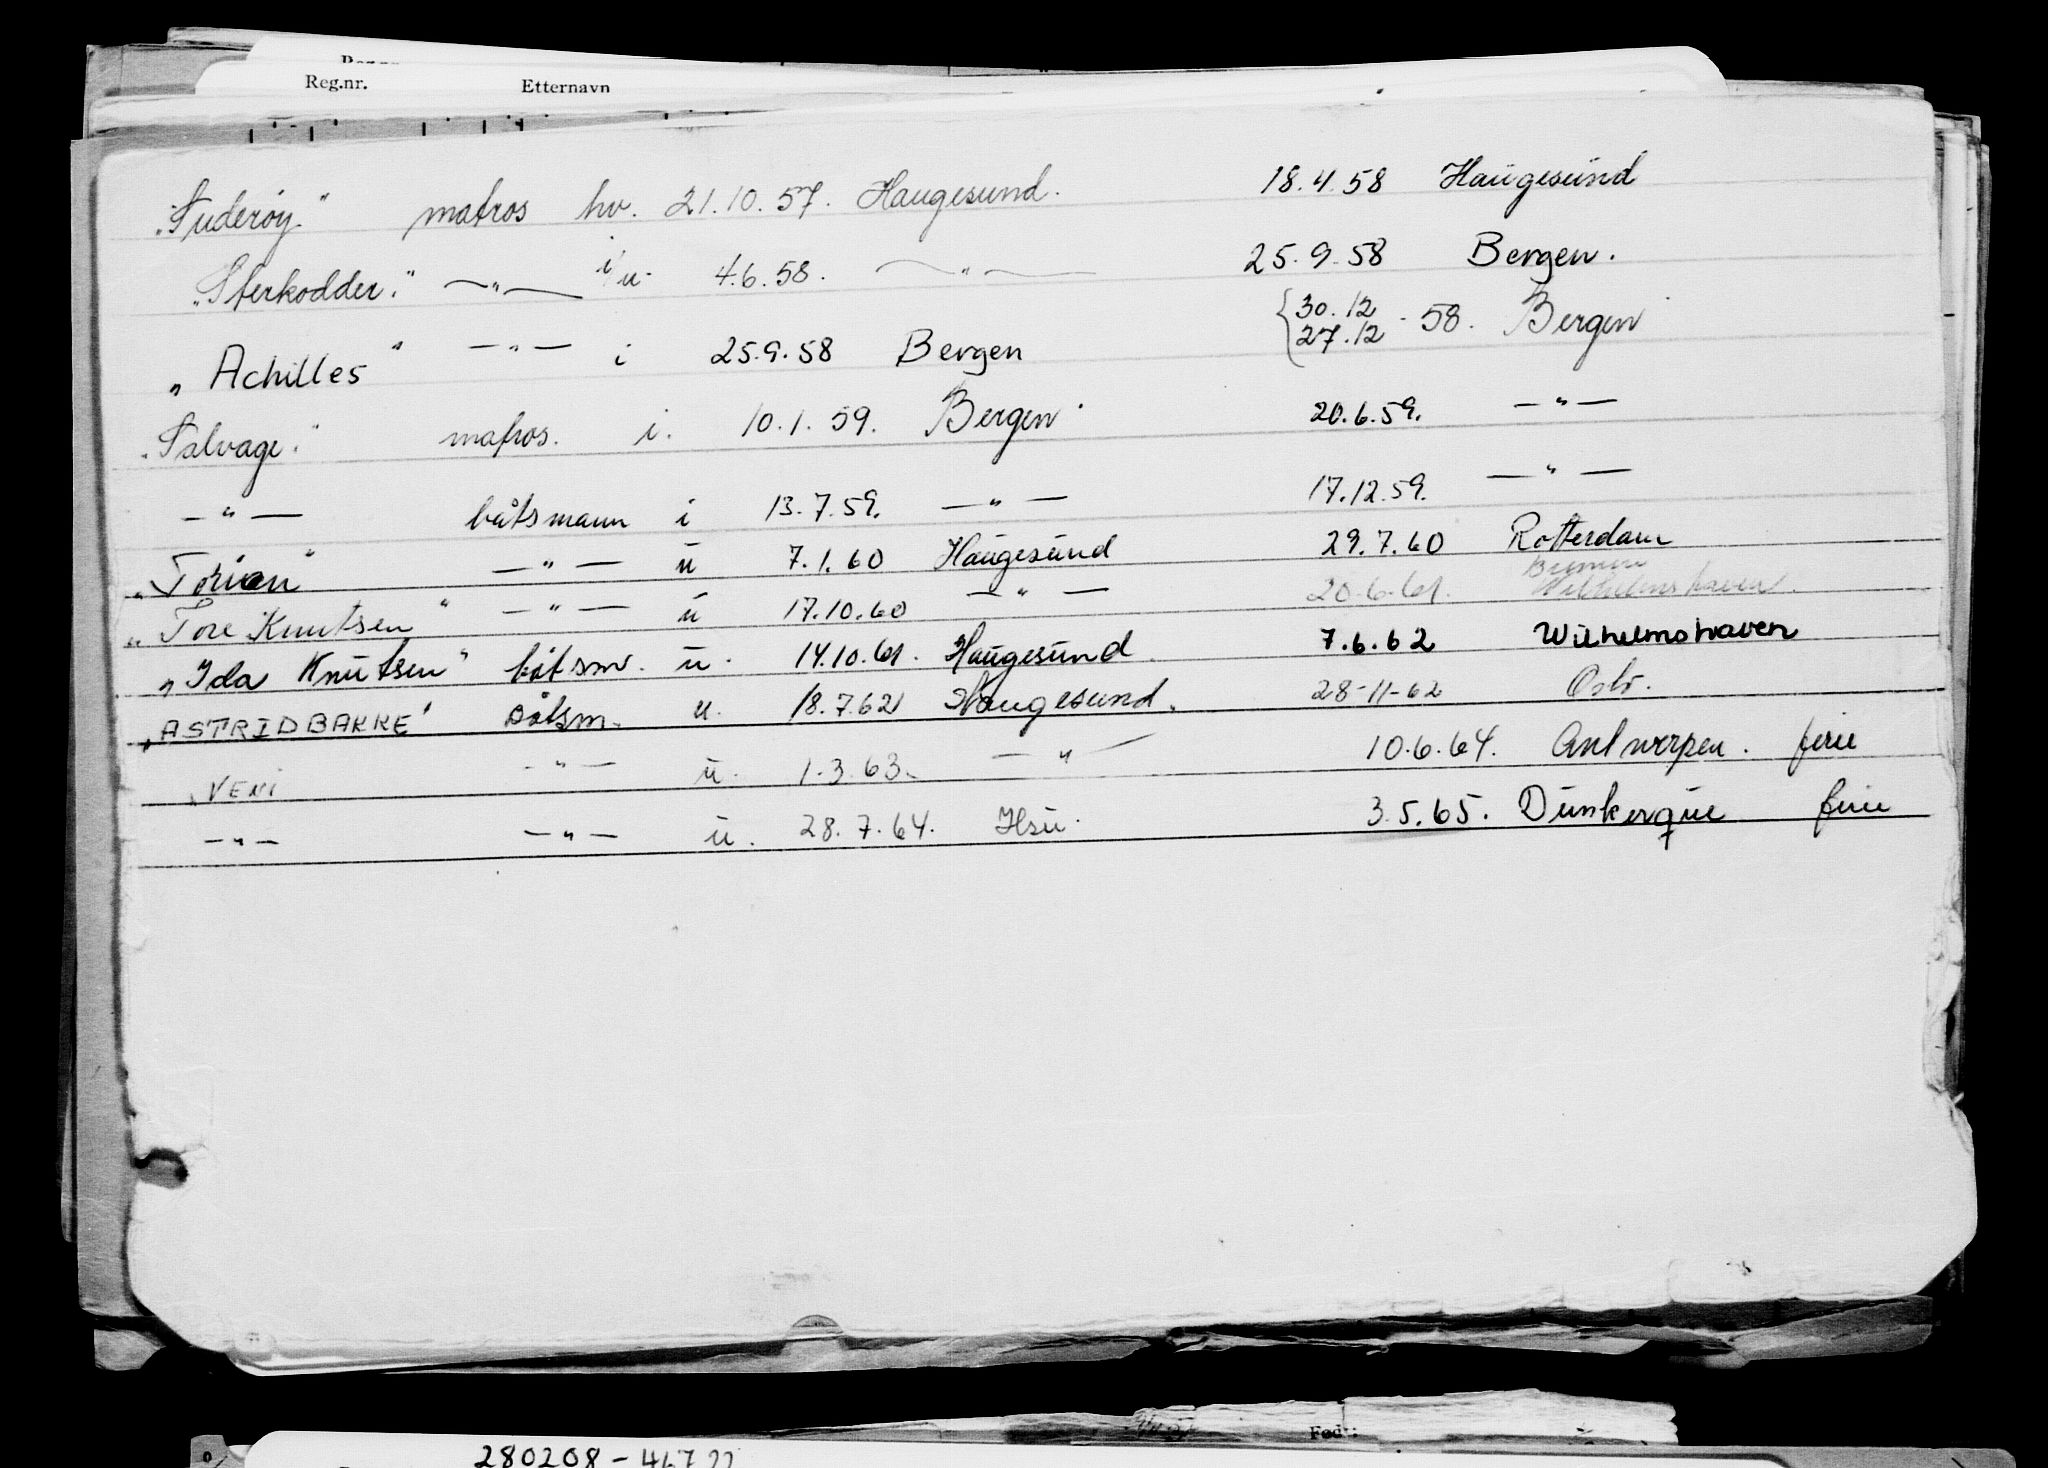 Reg.nr. Etternavn
"Suderøy." matros hv. 21.10.57. Haugesund. 18.4.58 Haugesund
"Sterkodder." —"— i/u 4.6.58. —"— 25.9.58 Bergen.
"Achilles" —"— i 25.9.58 Bergen {30.12 27.12 - 58. Bergen
"Salvage." matros. i. 10.1.59. Bergen 20.6.59. —"—
—"— båtsmann i 13.7.59. —"— 17.12.59. —"—
"Torian" —"— u 7.1.60 Haugesund 29.7.60 Rotterdam
"Tore Knutsen" —"— u 17.10.60 —"— 20.6.61. Bremen Wilhelmshaven.
"Ida Knutsen" båtsm. u. 14.10.61. Haugesund. 7.6.62 Wilhelmshaven
"ASTRIDBAKKE" båtsm. u. 18.7.62 Haugesund. 28-11-62 Oslo.
"VENI —"— u. 1.3.63. —"— 10.6.64. Antwerpen. ferie
—"— —"— u. 28.7.64. Hsu. 3.5.65. Dunkerque ferie
Født:
280208-46722